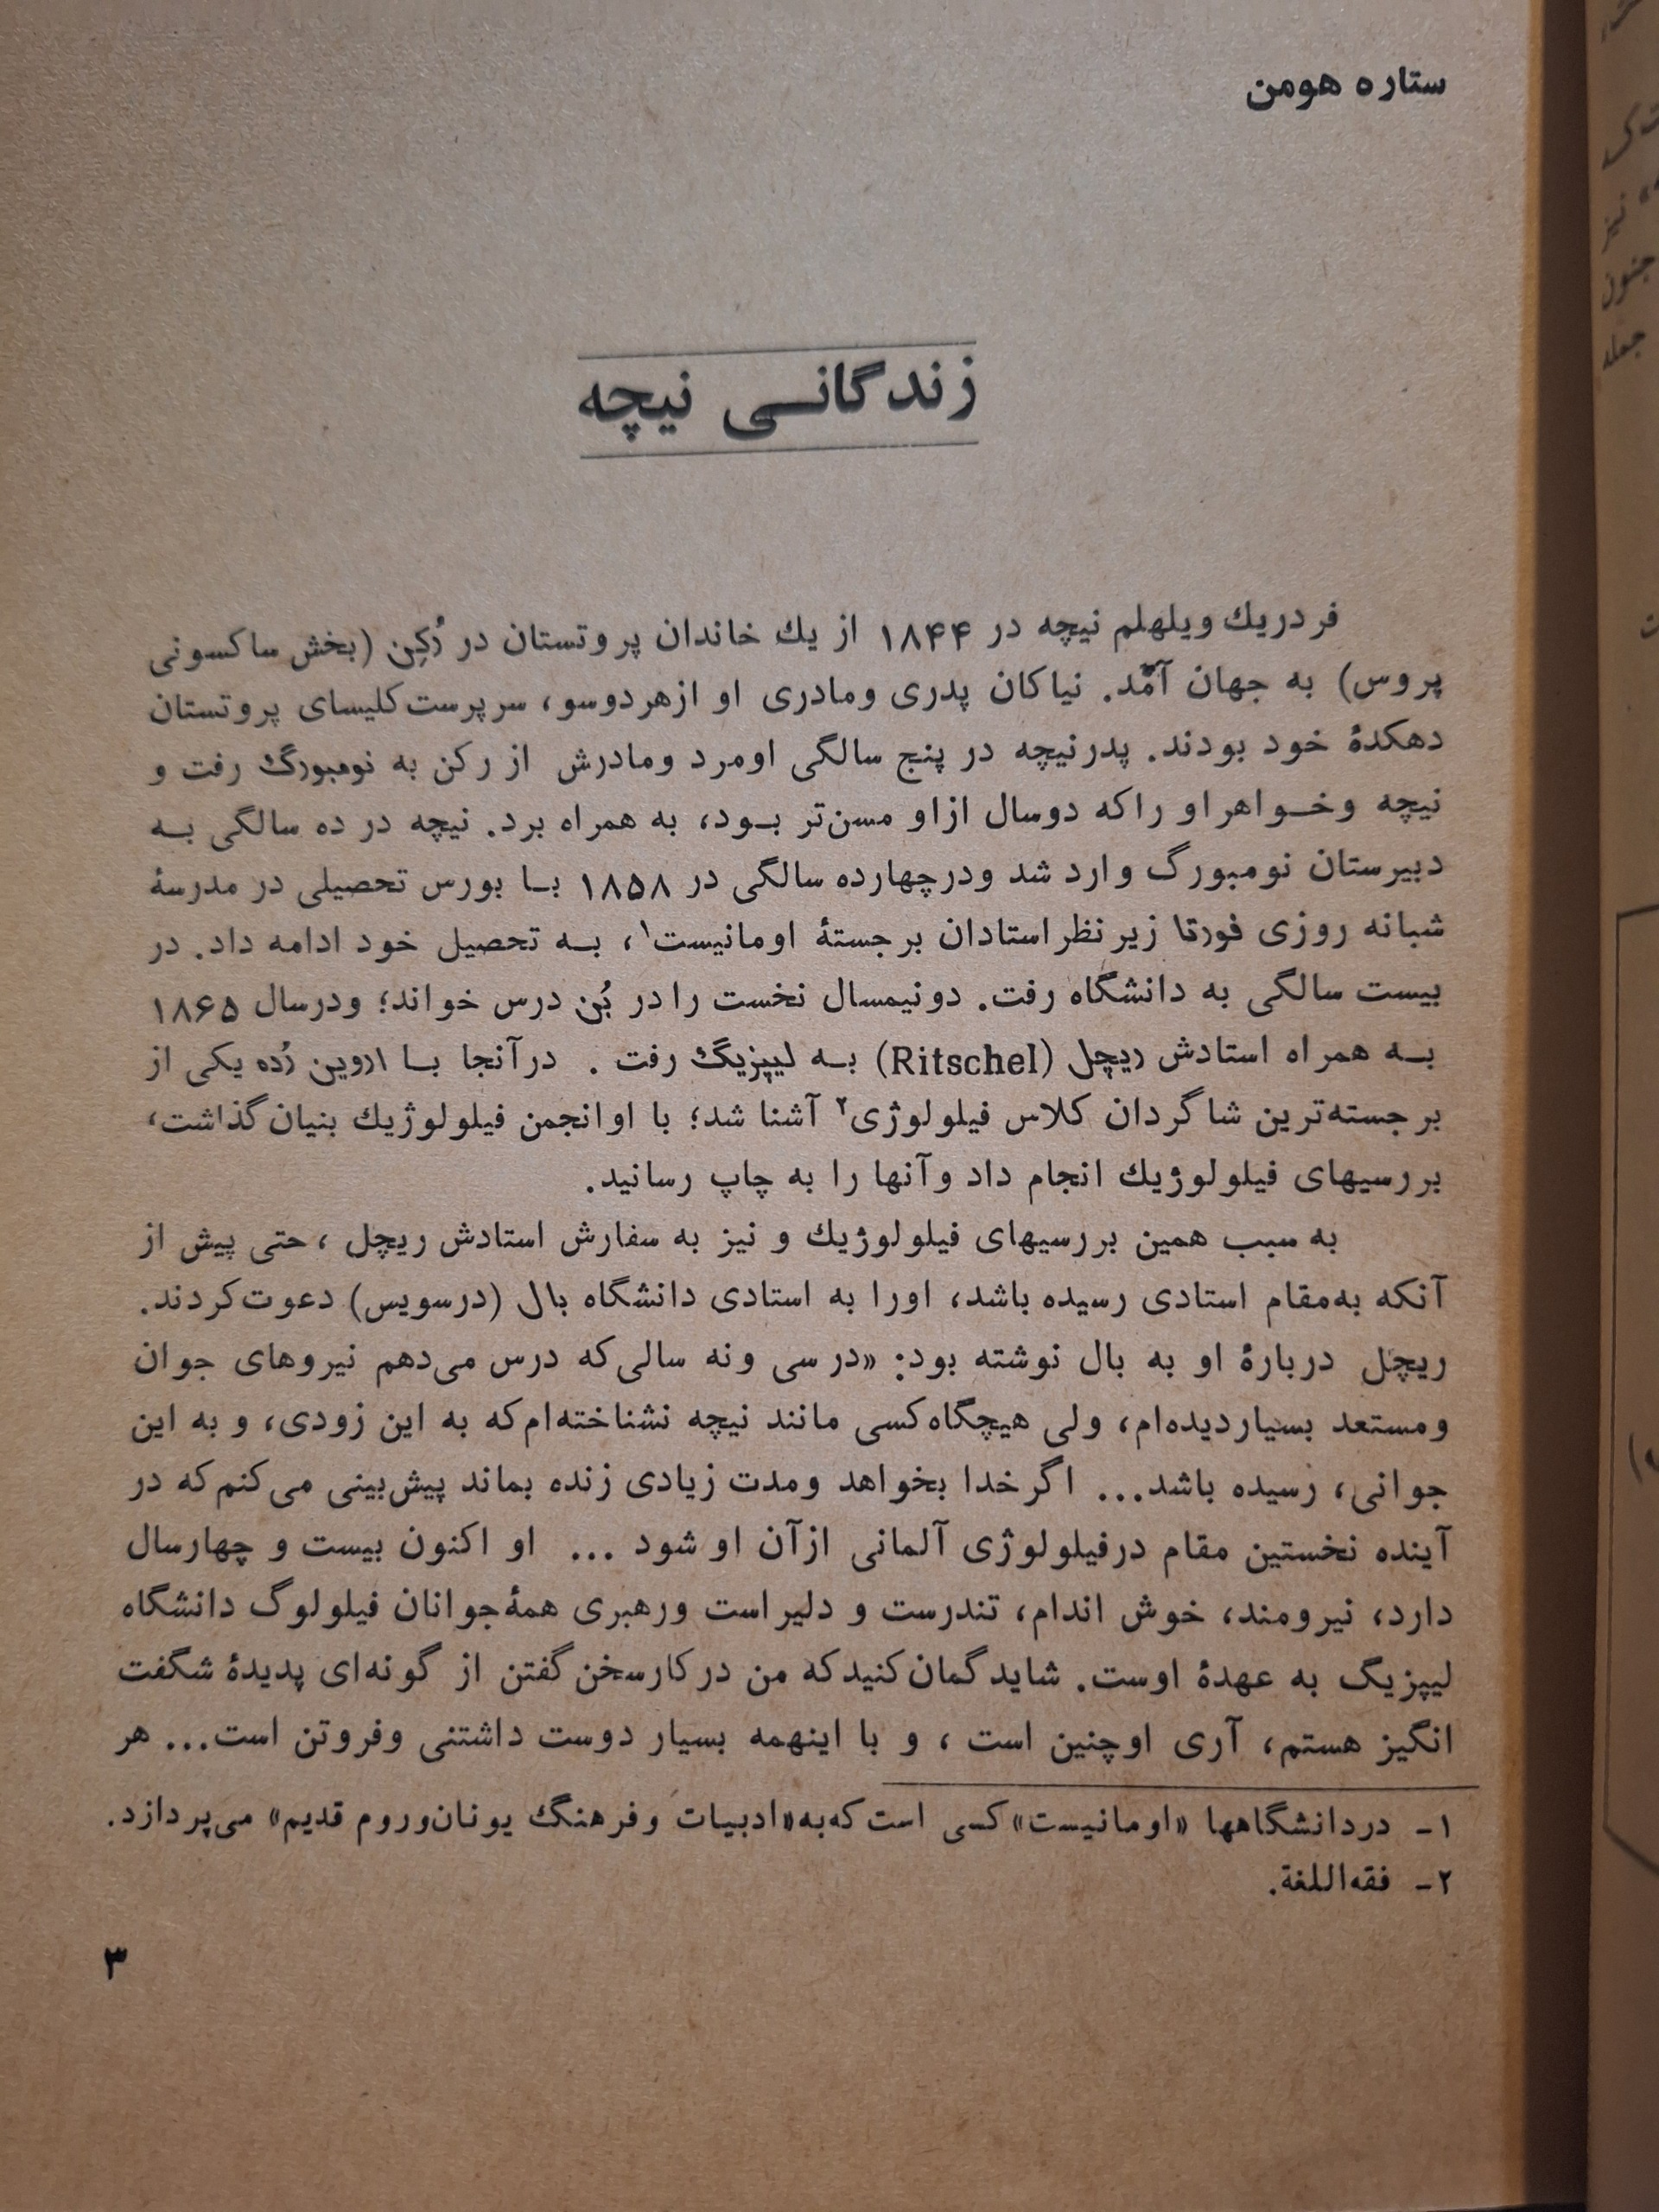 ستاره هومن
زندگانـی نیچه
فردریك ویلهلم نیچه در ۱۸۴۴ از یك خاندان پروتستان در رُکِن (بخش ساکسونی
پروس) به جهان آمد. نیاکان پدری ومادری او ازهردوسو، سرپرست کلیسای پروتستان
دهکدهٔ خود بودند. پدرنیچه در پنج سالگی اومرد ومادرش از رکن به نومبورگ رفت و
نیچه وخـواهراو راکه دوسال ازاو مسن‌تر بـود، به همراه برد. نیچه در ده سالگی بـه
دبیرستان نومبورگ وارد شد ودرچهارده سالگی در ۱۸۵۸ بـا بورس تحصیلی در مدرسهٔ
شبانه روزی فورتا زیر نظر استادان برجستهٔ اومانیست۱، بـه تحصیل خود ادامه داد. در
بیست سالگی به دانشگاه رفت. دونیمسال نخست را در بُن درس خواند؛ ودرسال ۱۸۶۵
بـه همراه استادش ریچل (Ritschel) بـه لیپزیگ رفت . درآنجا بـا اروین رُده یکی از
برجسته‌ترین شاگردان کلاس فیلولوژی۲ آشنا شد؛ با اوانجمن فیلولوژیك بنیان گذاشت،
بررسیهای فیلولوژیك انجام داد وآنها را به چاپ رسانید.
به سبب همین بررسیهای فیلولوژیك و نیز به سفارش استادش ریچل ، حتی پیش از
آنکه به‌مقام استادی رسیده باشد، اورا به استادی دانشگاه بال (درسویس) دعوت کردند.
ریچل دربارهٔ او به بال نوشته بود: «درسی ونه سالی‌که درس می‌دهم نیروهای جوان
ومستعد بسیاردیده‌ام، ولی هیچگاه‌کسی مانند نیچه نشناخته‌ام‌که به این زودی، و به این
جوانی، رسیده باشد... اگرخدا بخواهد ومدت زیادی زنده بماند پیش‌بینی می‌کنم‌که در
آینده نخستین مقام درفیلولوژی آلمانی ازآن او شود ... او اکنون بیست و چهارسال
دارد، نیرومند، خوش اندام، تندرست و دلیراست ورهبری همهٔ‌جوانان فیلولوگ دانشگاه
لیپزیگ به عهدهٔ اوست. شاید گمان‌کنید‌که من درکارسخن گفتن از گونه‌ای پدیدهٔ شگفت
انگیز هستم، آری اوچنین است ، و با اینهمه بسیار دوست داشتنی وفروتن است... هر
۱ـ دردانشگاهها «اومانیست» کسی است‌که‌به «ادبیات وفرهنگ یونان‌وروم قدیم» می‌پردازد.
۲ـ فقه‌اللغة.
۳